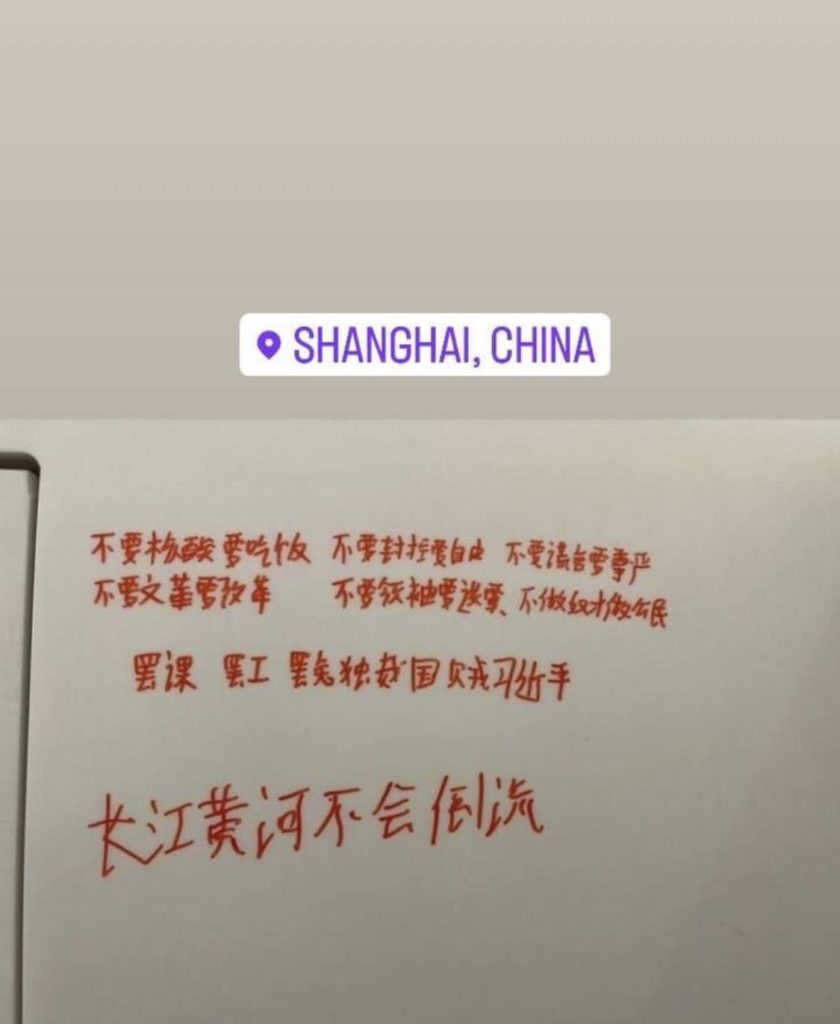 SHANGHAI, CHINA
不要核酸要吃饭 不要封控要自由 不要谎言要尊严
不要文革要改革 不要领袖要选票、不做奴才做公民
罢课 罢工 罢免独裁国贼习近平
长江黄河不会倒流